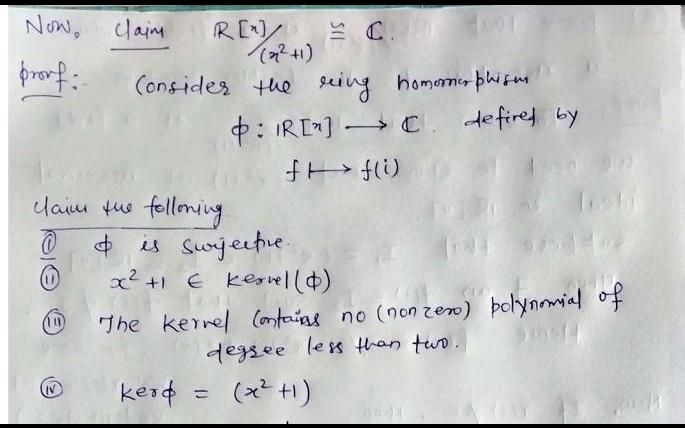 Now, claim ℝ[x]/(x²+1) ≅ ℂ.
proof:- Consider the ring homomorphism
ϕ : ℝ[x] ⟶ ℂ. defined by
f ⟼ f(i)
claim the following
(i) ϕ is surjective.
(ii) x²+1 ∈ kernel(ϕ)
(iii) The kernel contains no (non zero) polynomial of
degree less than two.
(iv) kerϕ = (x²+1)